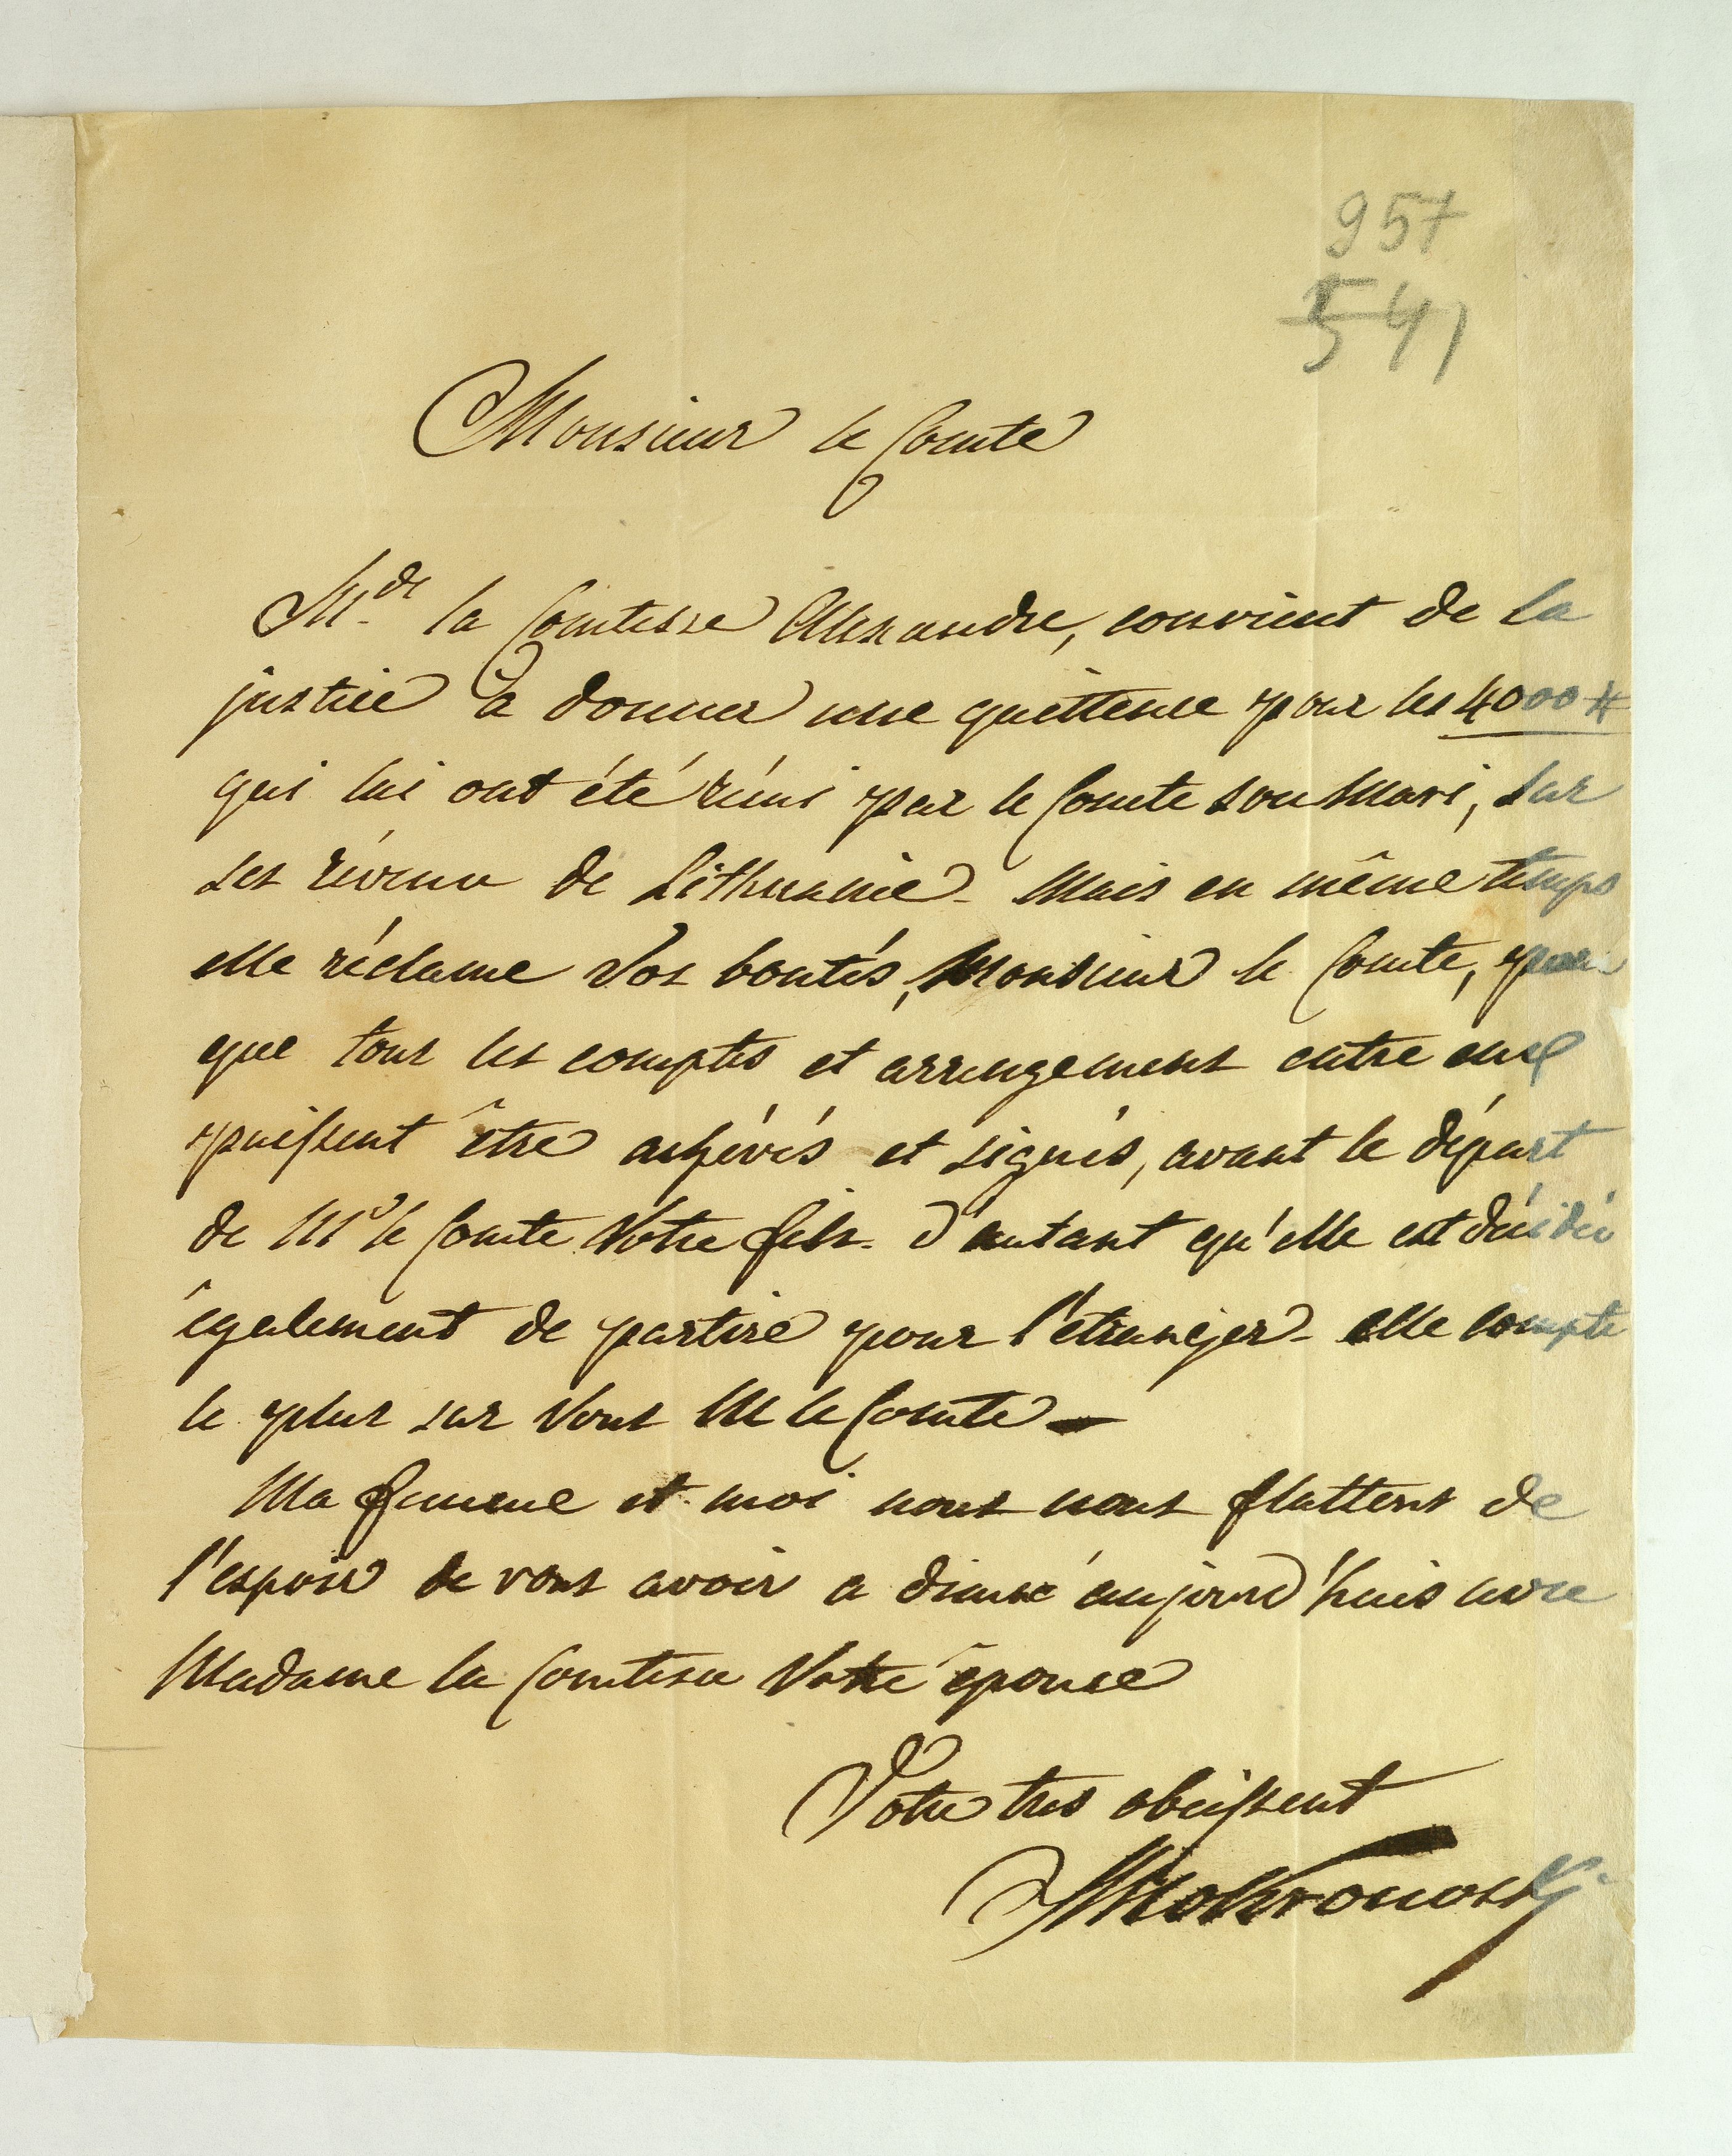 957
541
Monsieur le Comte
Mde la Comtesse Alexandre, convient de la
justice à donner une quittence pour les 4000 #
qui lui ont été rémi par le Comte son Mari, sur
ses révenu de Lithuanie - Mais en même temps
elle réclame Vos bontés, Monsieur le Comte, pour
que tous les comptes et arrengement entre eux
puissent être achévés et signés, avant le départ
de Mr le Comte Votre fils - d'autant qu'elle est décidée
également de partire pour l'étranger - elle compte
le plus sur Vous M le Comte -
Ma femme et moi nous nous flattens de
l'espoir de vous avoir a diner aujourd'huis avec
Madame la Comtesse Votre épouse
Votre tres obeissent
Mokronoski